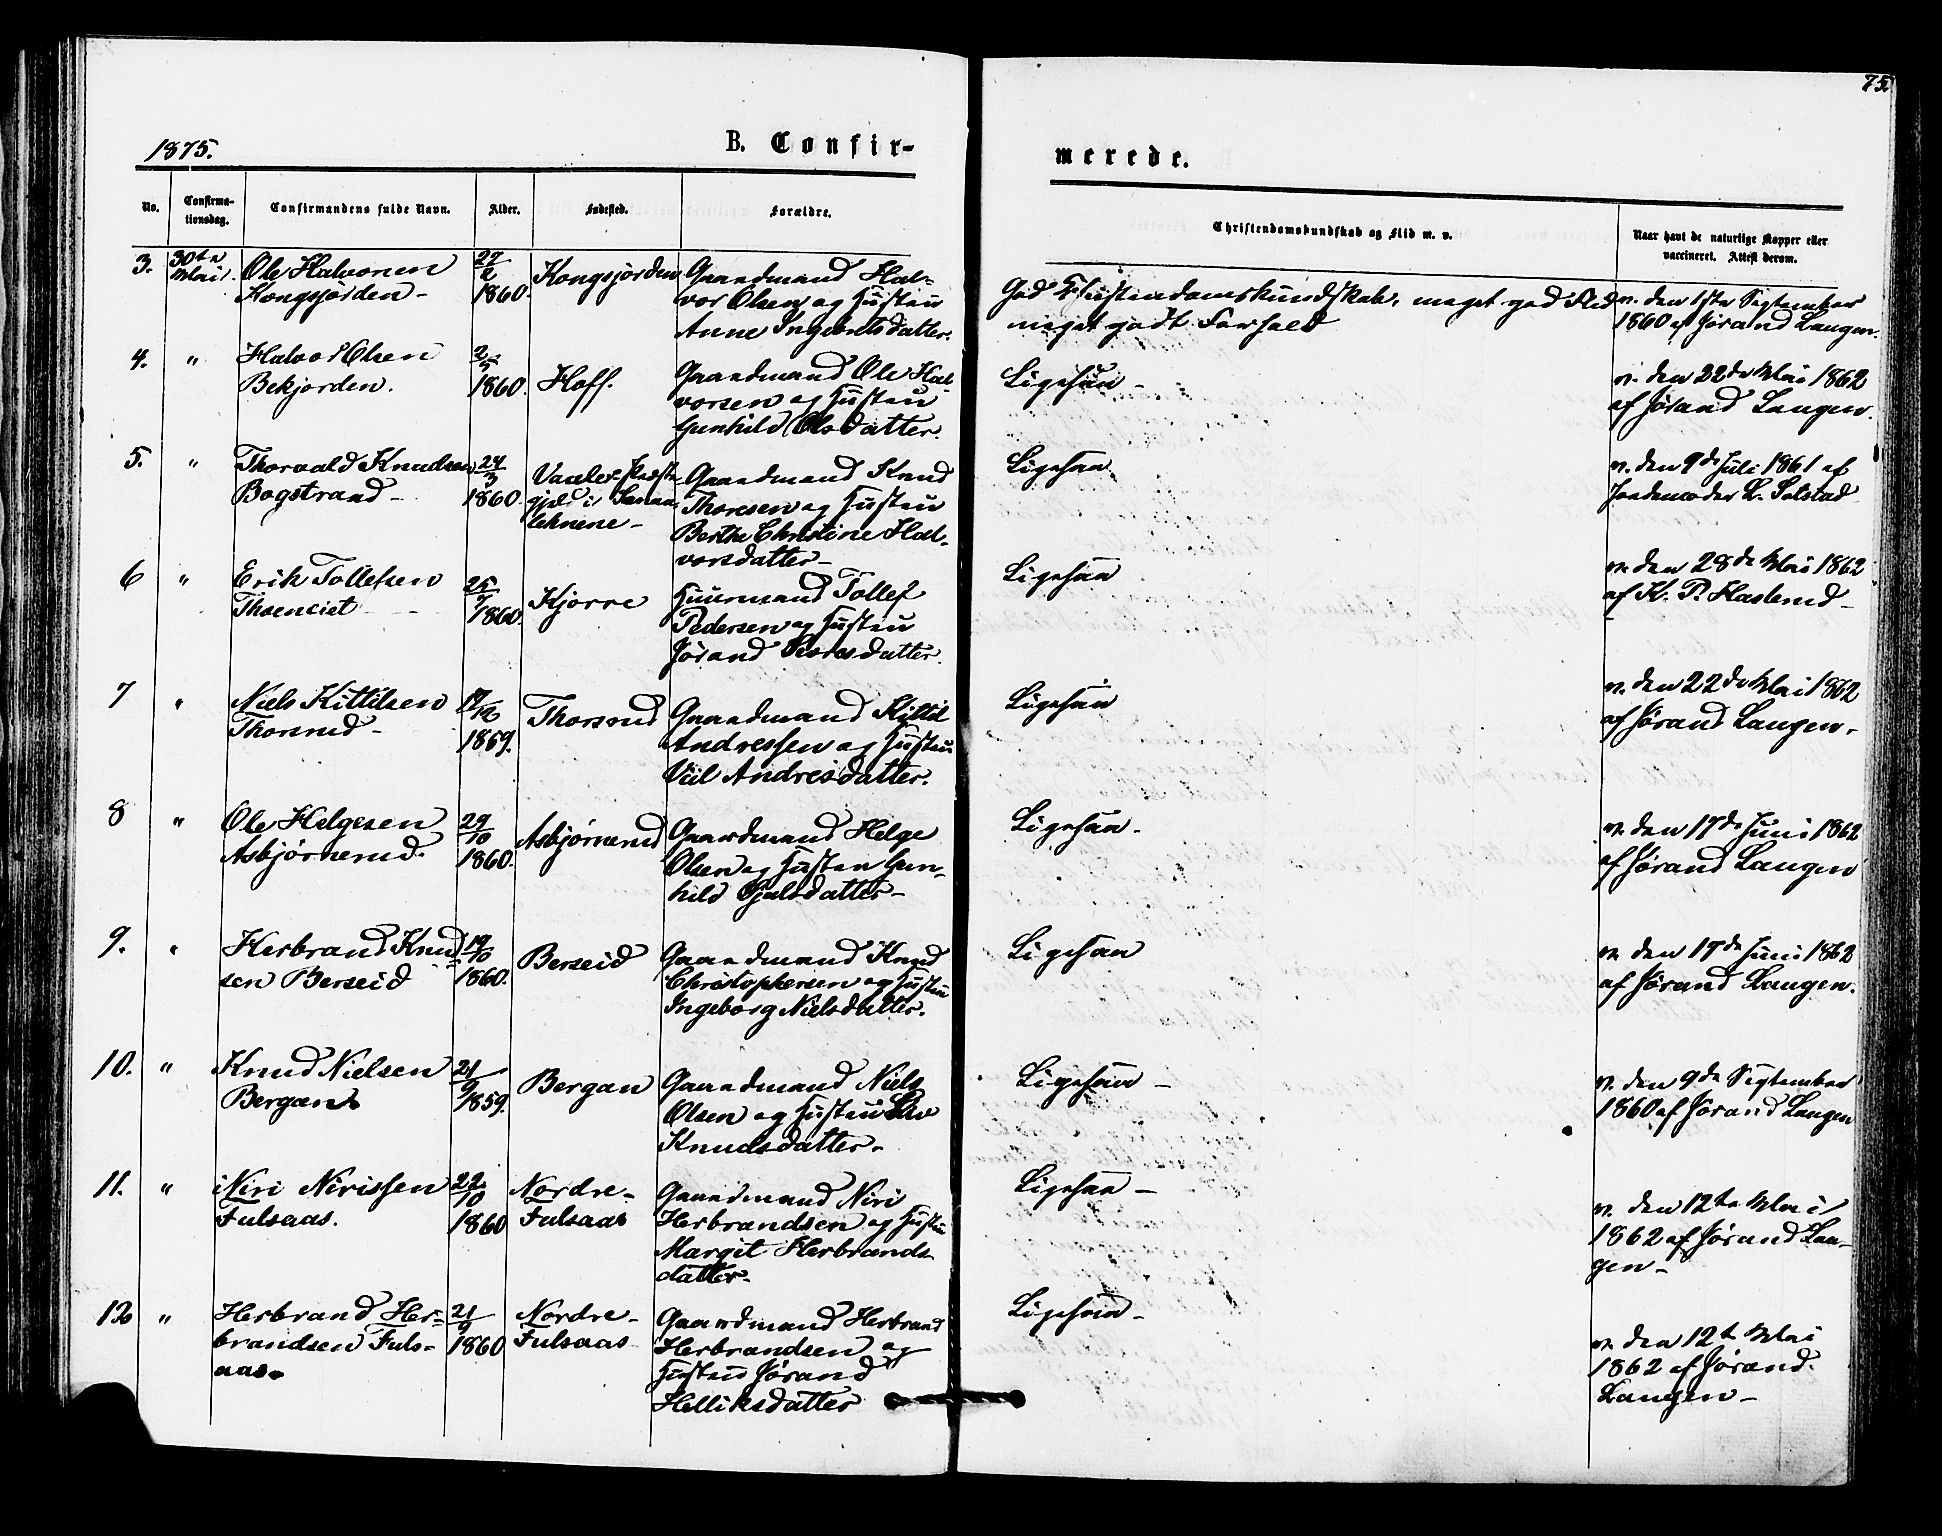 75
1875.
B. Confir-
merede.
No.
Confirma-
tionsdag.
Confirmandens fulde Navn.
Alder.
Fødested.
Forældre.
Christendomskundskab og Flid m. v.
Naar havt de naturlige Kopper eller
vaccineret. Attest derom.
3. 30te Ole Halvorsen 27/2 Kongsjorden Gaardmand Hal-
Mai. Kongsjorden- 1860. vor Olsen og Hustru
Anne Ingebretsdatter.
God Christendomskundskab, meget god Flid
meget godt Forhold
v. den 1ste September
1860 af Jørand Langen.
4. " Halvor Olsen 2/5 Hoff. Gaardmand Ole Hal-
Bekjorden. 1860. vorsen og Hustru
Gunhild Olsdatter.
Ligesaa-
v. den 22de Mai 1862
af Jørand Langen.
5. " Thorvald Knudsen 24/3 Gaardmand Knud
Bogstrand- 1860. Thoresen og Hustru
lehnene- Berthe Christine Hal-
vorsdatter-
Ligesaa
v. den 9de Juli 1861 af
Jordemoder L. Solstad
6 " Erik Tollefsen 25/7 Kjorre Huusmand Tollef
1860. Pedersen og Hustru
Jørand datter.
Ligesaa
v. den 28de Mai 1862
af K. P. Haslerud-
7 " Niels Kittilsen 17/12 Thorsrud Gaardmand Kittil
Thorsrud- 1859. Andressen og Hustru
Viil Andresdatter.
Ligesaa
v. den 22de Mai 1862
af Jørand Langen-
8 " Ole Helgesen 29/10 Asbjørnerud Gaardmand Helge
Asbjørnerud. 1860. Olsen og Hustru Gun-
hild datter-
Ligesaa-
v. den 17de Juni 1862
af Jørand Langen
9. " Herbrand Knud= 19/10 Berseid Gaardmand Knud
sen Berseid 1860. Christophersen og Hustru
Ingeborg Nielsdatter.
Ligesaa
v. den 17de Juni 1862
af Jørand Langen.
10. " Knud Nielsen 21/9 Bergan Gaardmand Niels
Bergan 1859. Olsen og Hustru Liv
Knudsdatter-
Ligesaa-
v. den 9de September
1860 af Jørand Langen
11. " Niri Nirissen 22/10 Nordre- Gaardmand Niri
Fulsaas. 1860 Fulsaas Herbrandsen og Hustru
Margit Herbrands
datter-
Ligesaa-
v. den 12te Mai
1862 af Jørand Lan-
gen-
12 " Herbrand Her= 21/9 Nordre- Gaardmand Herbrand
brandsen Fuls= 1860 Fulsaas Herbrandsen og
aas. Hustru Jørand
Helliksdatter
Ligesaa-
v. den 12te Mai
1862 af Jørand
Langen-